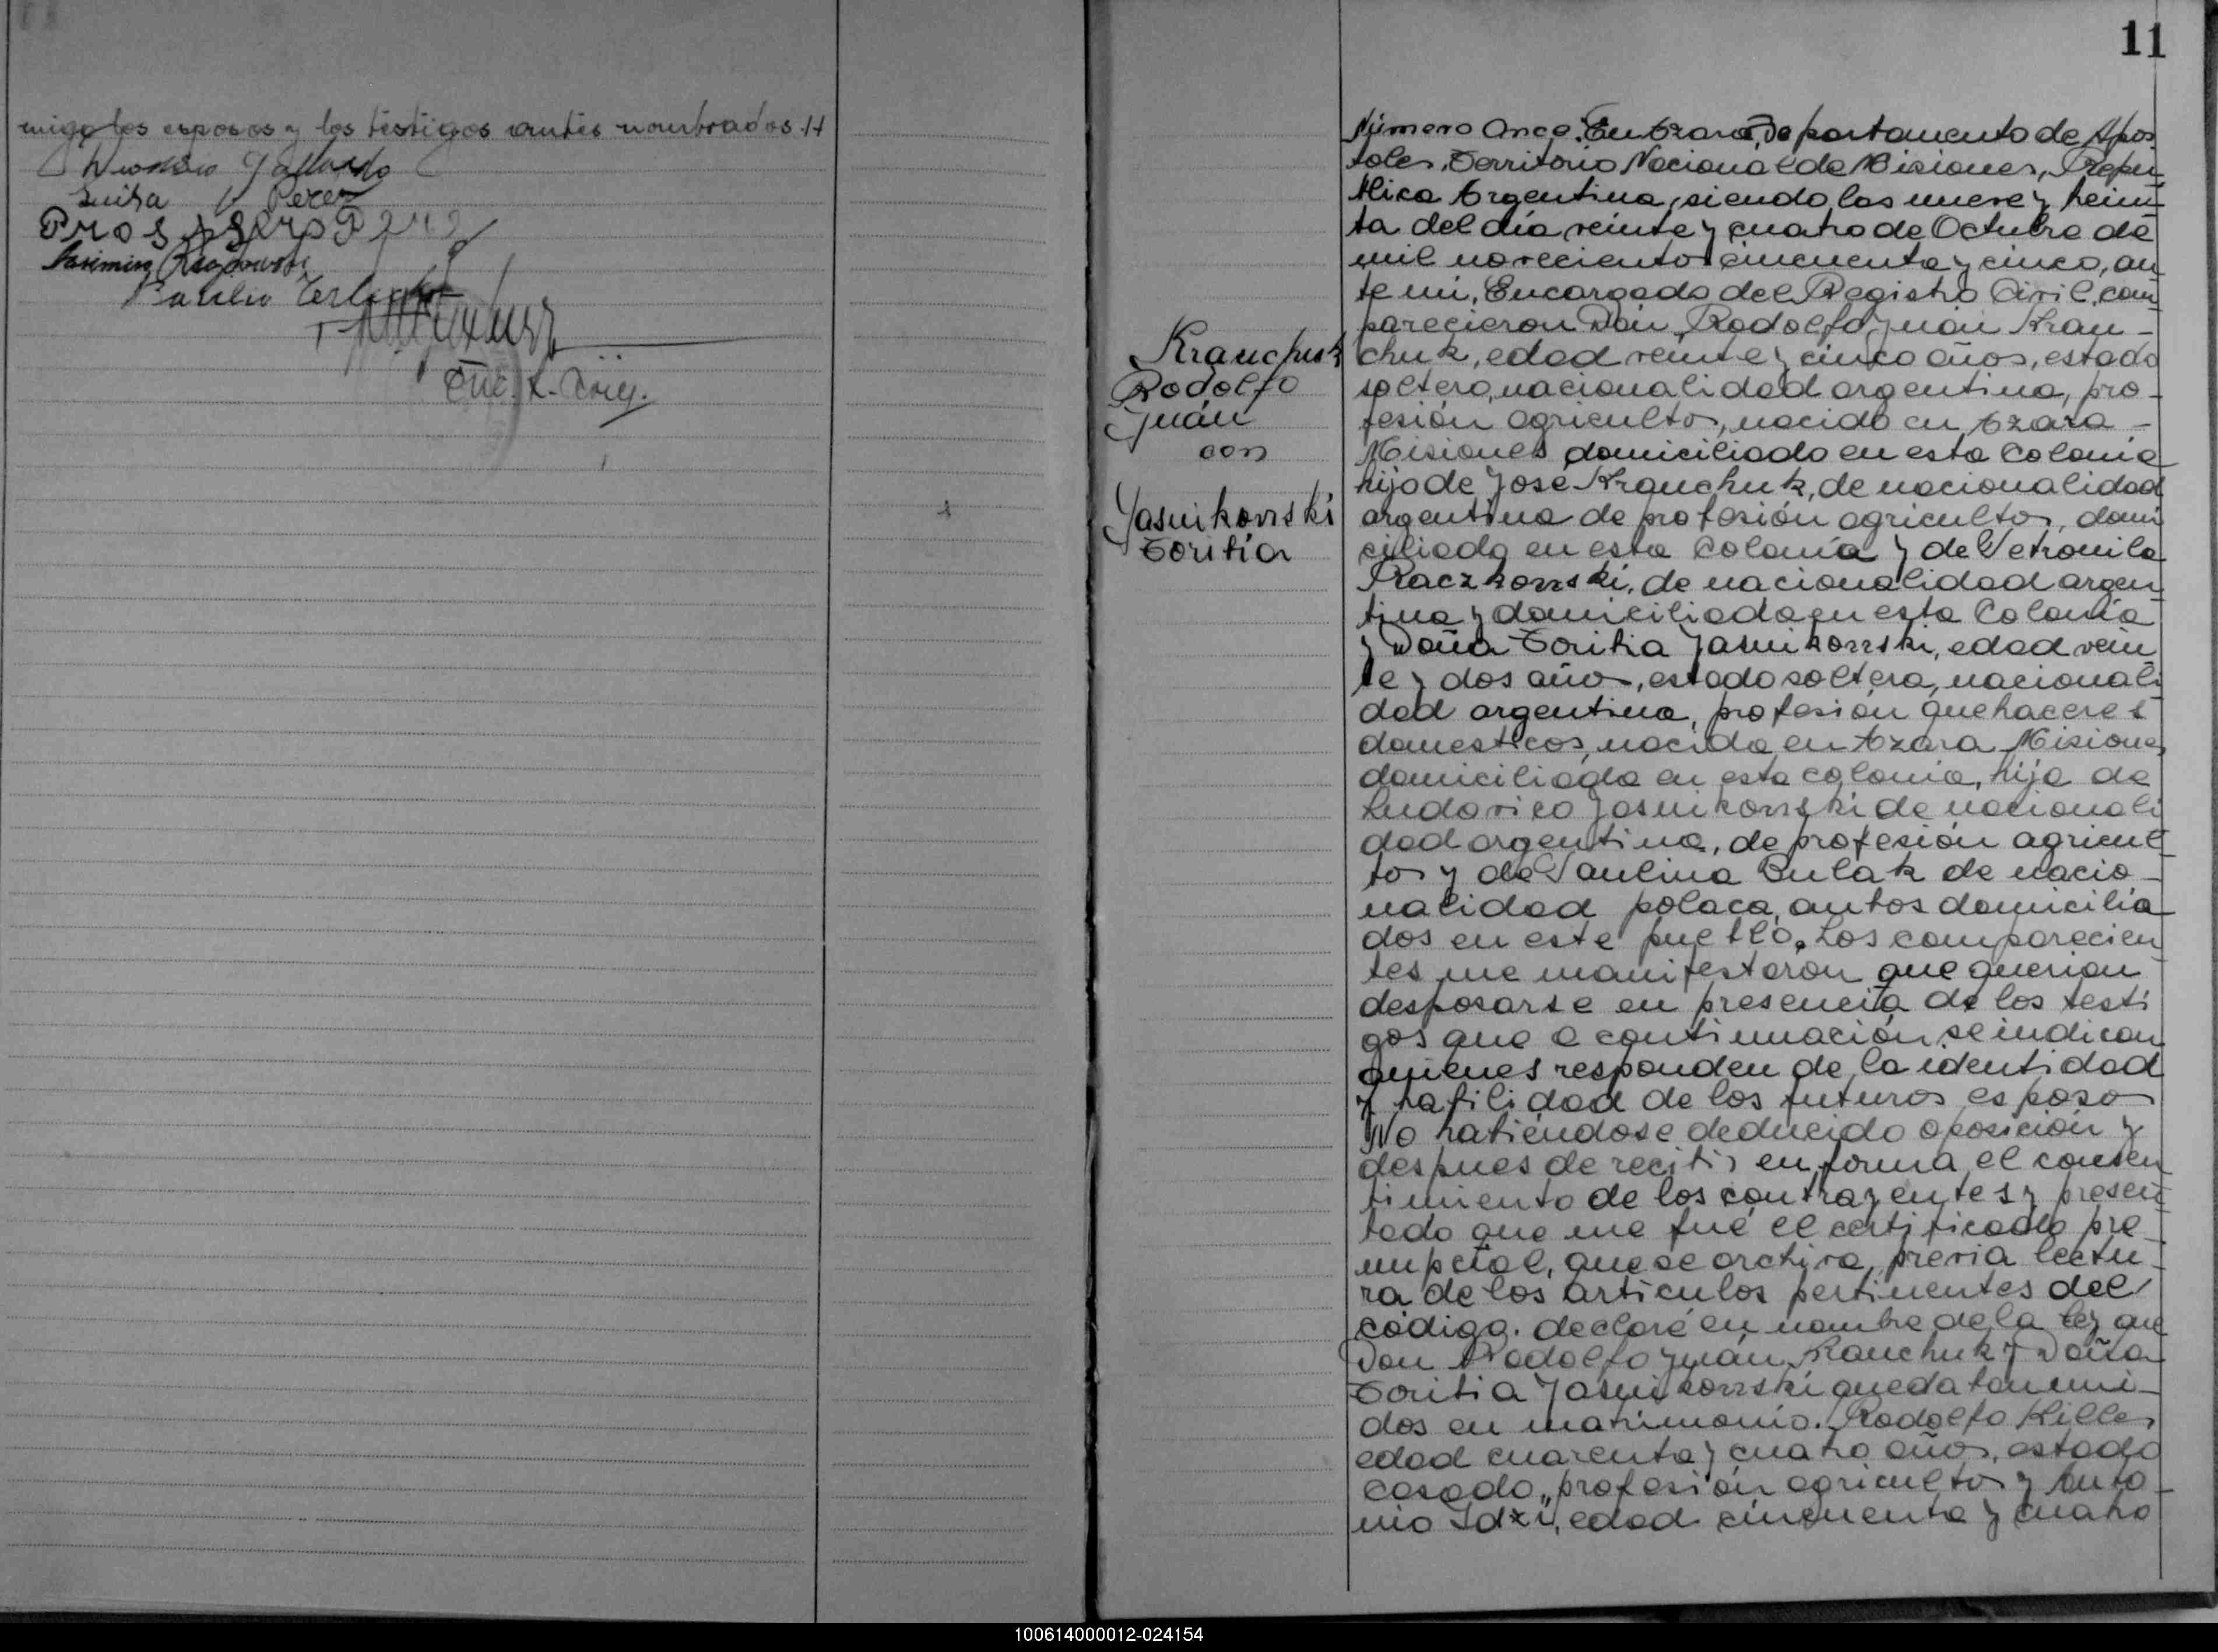 migo los esposos y los testigos antes nombrados.
Gallardo
Luisa Perez
Prospero Perez
Casimiro
Basilio
Enc. R. Civ.
11
Número Once. En Azara, Departamento de Apos
toles, Territorio Nacional de Misiones, Repu
blica Argentina, siendo las nueve y trein
ta del día veinte y cuatro de Octubre de
mil novecientos cincuenta y cinco, an
te mi, Encargado del Registro Civil, com
parecieron Don Rodolfo Juán Krau-
chuk, edad veinte y cinco años, estado
soltero, nacionalidad argentina, pro-
fesión agricultor, nacido en Azara -
Misiones domiciliado en esta Colonia
hijo de José Krauchuk, de nacionalidad
argentina de profesión agricultor, domi
ciliado en esta Colonia y de Petronila
Raczkowski, de nacionalidad argen
tina y domiciliada en esta Colonia
y Doña Toribia Jasnikowski, edad vein
te y dos años, estado soltera, nacionali
dad argentina, profesión quehaceres
domesticos, nacida en Azara Misiones
domiciliada en esta colonia, hija de
Ludovico Jasnikowski de nacionali
dad argentina, de profesión agricul
tor y de Paulina Bulak de nacio-
nalidad polaca, ambos domicilia
dos en este pueblo. Los comparecien
tes me manifestarón que querian
desposarse en presencia de los testi
gos que a continuación se indican
quienes responden de la identidad
y habilidad de los futuros esposos
No habiéndose deducido oposición y
despues de recibir en forma el consen
timiento de los contrayentes y presen
tado que me fué el certificado pre
nupcial, que se archiva, previa lectu-
ra de los artículos pertinentes del
código. declaré en nombre de la ley que
Don Rodolfo Juán Krauchuk y Doña
Toribia Jasnikowski quedaban uni-
dos en matrimonio. Rodolfo Hiller
edad cuarenta y cuatro años, estado
casado, profesión agricultor y Anto-
nio Idzi, edad cincuenta y cuatro
Krauchuk
Rodolfo
Juán
con
Yasnikowski
Toribia
100614000012-024154